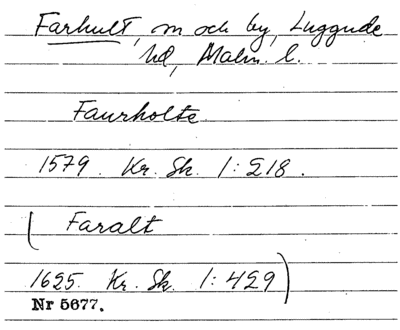 Farhult, sn och by, Luggude
hd, Malm. l.
Faurholte
1579. Kr. Sk. 1:218.
(Faralt
1625. Kr. Sk. 1:429)
Nr 5677.